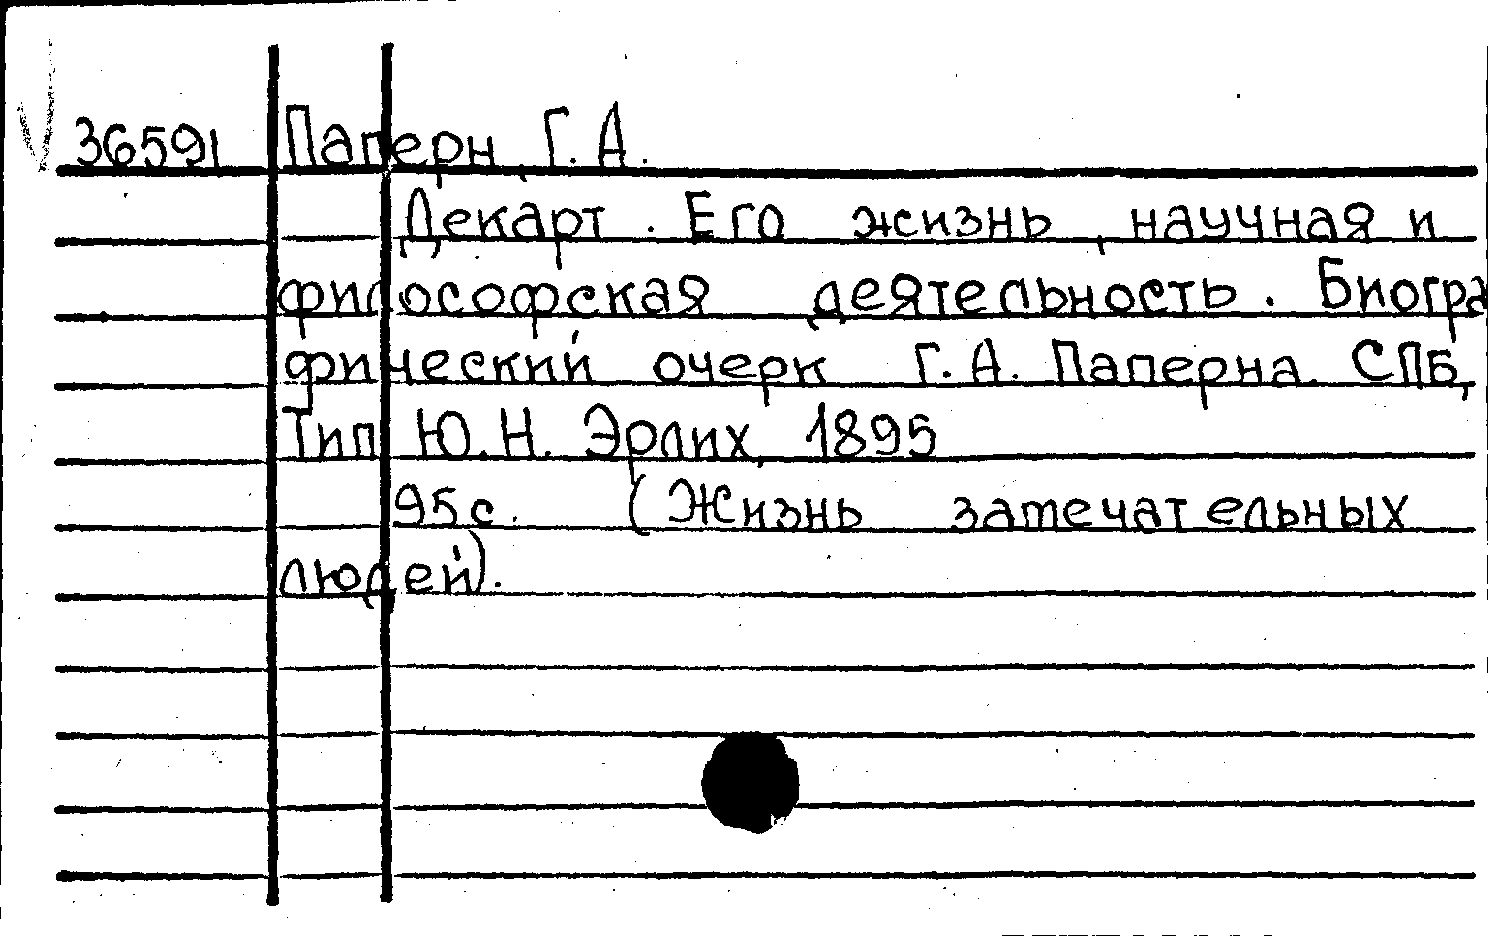 36591 Паперн, Г. А.
Декарт. Его жизнь, научная и
философская деятельность. Биогра
фический очерк Г. А. Паперна. СПБ,
Тип Ю. Н. Эрлих, 1895
95 с. (Жизнь замечательных
людей).